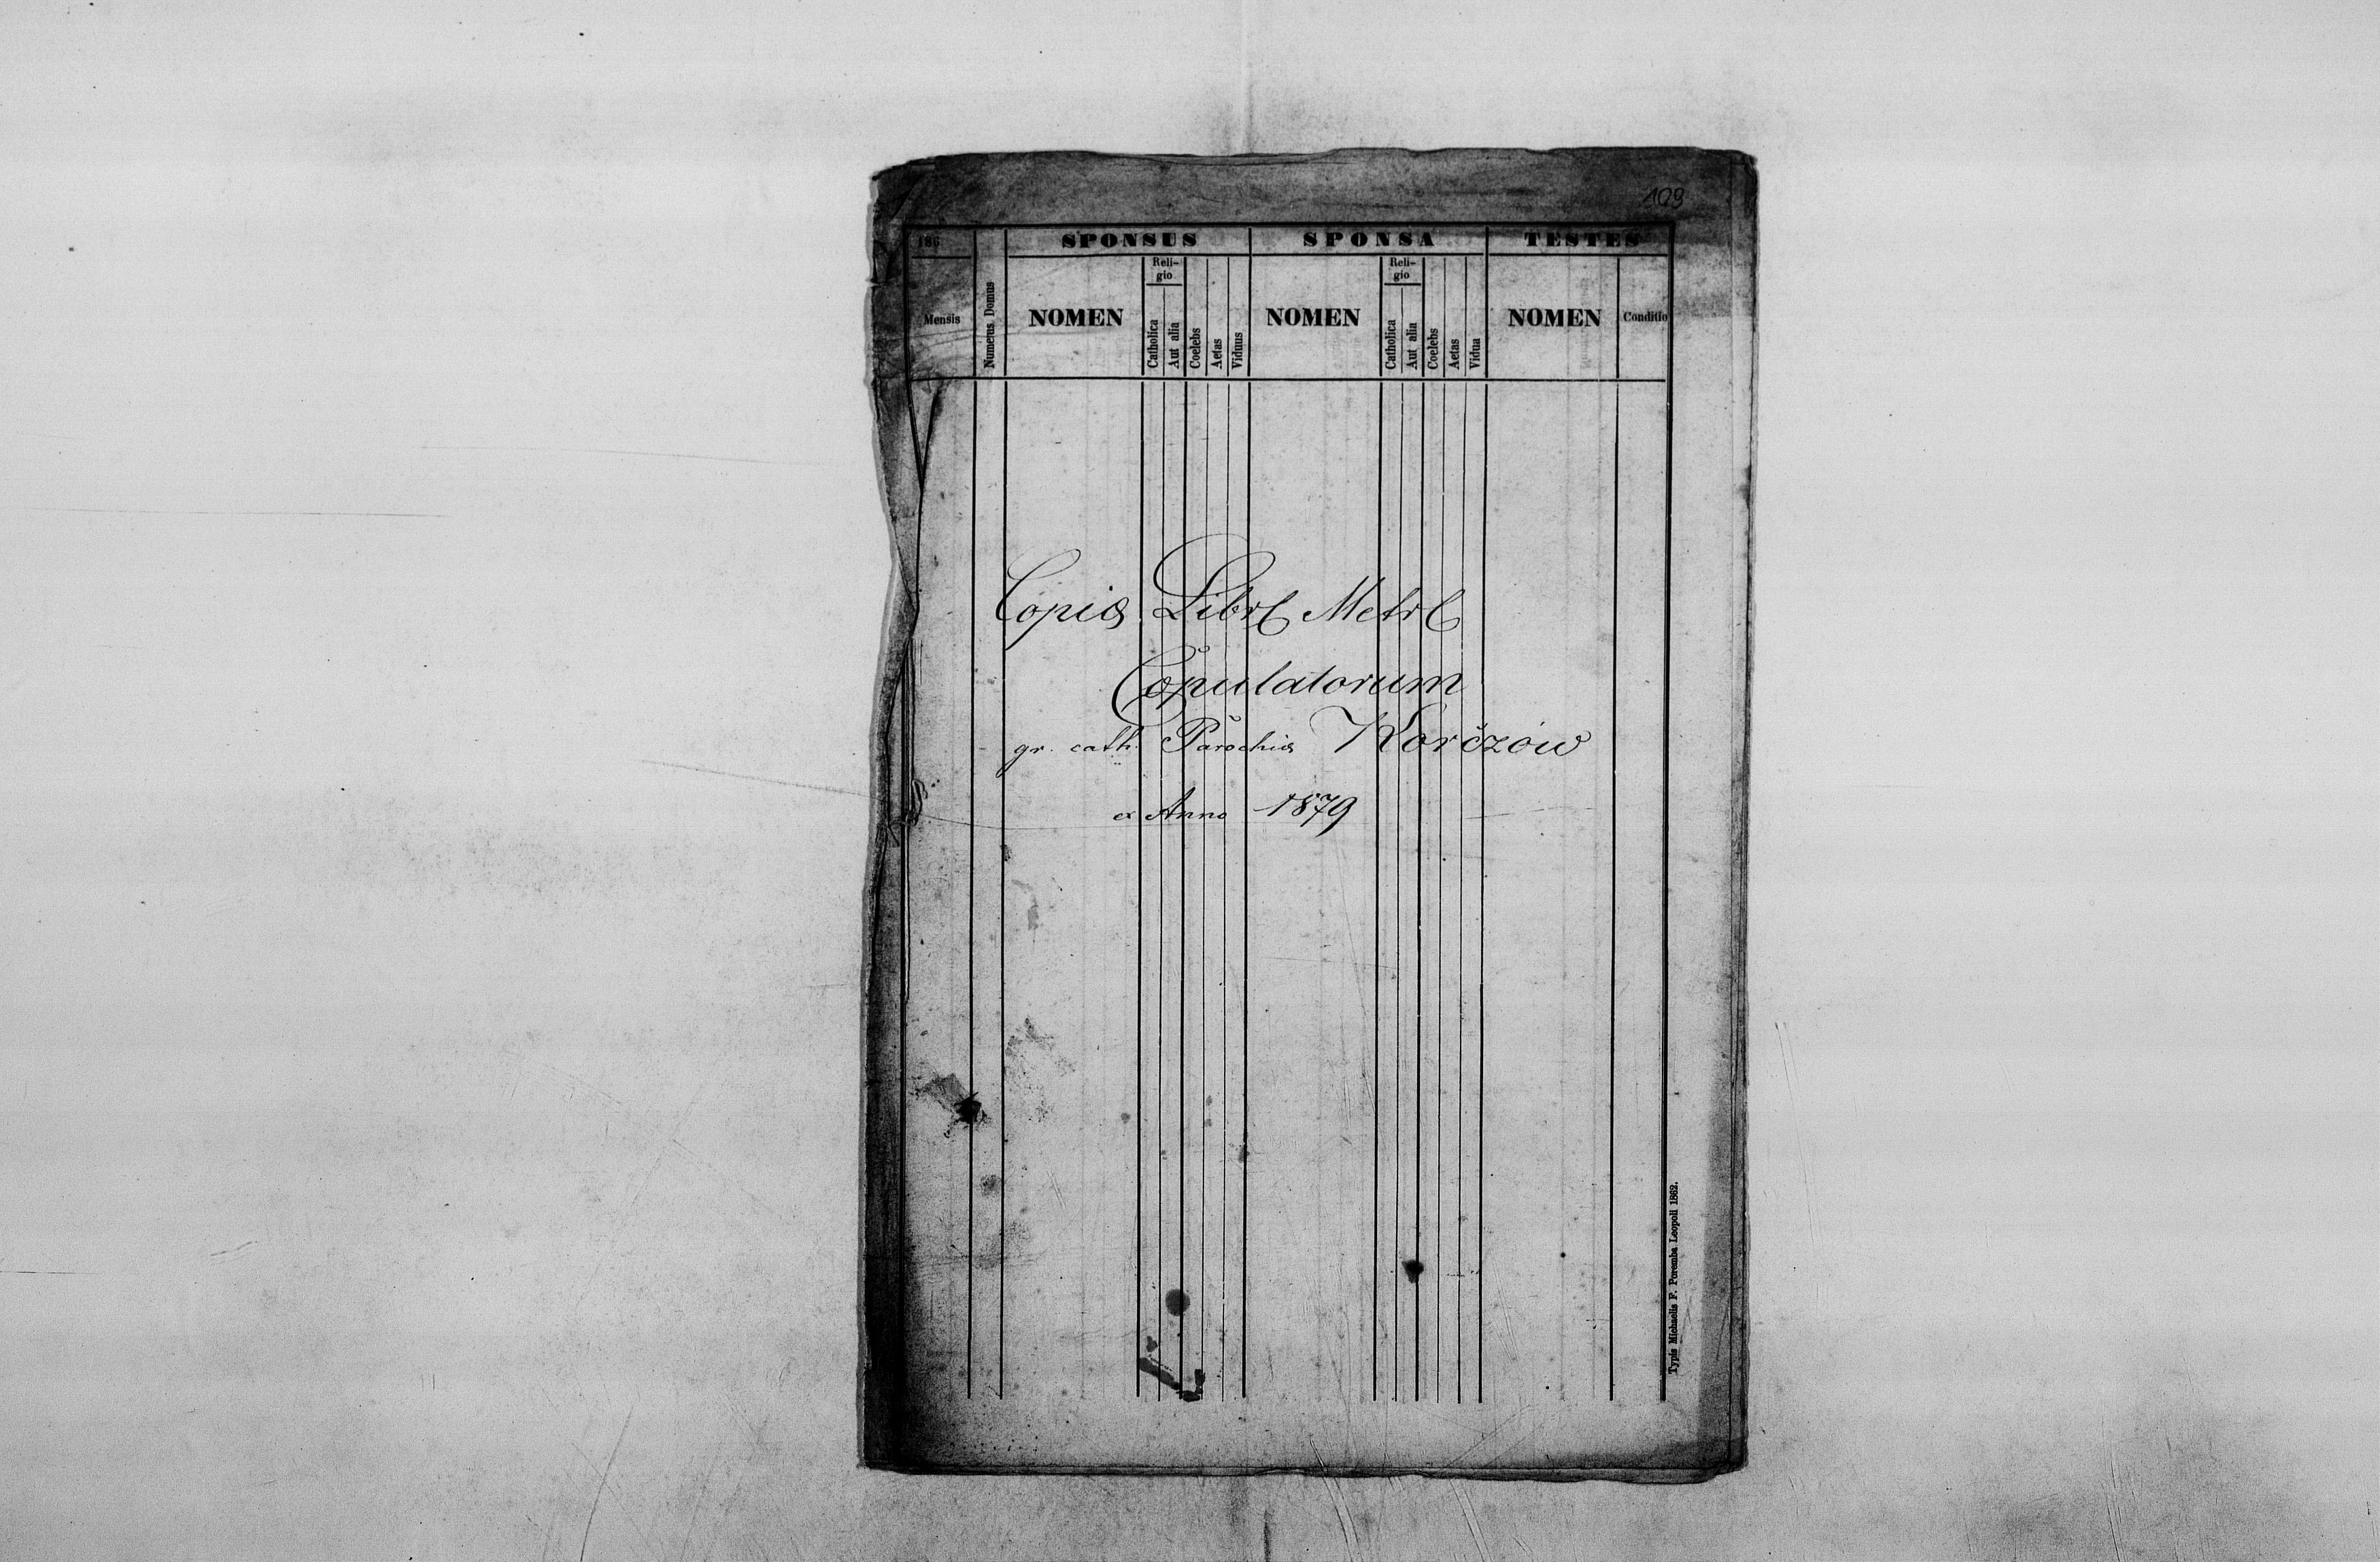 109
186
SPONSUS SPONSA TESTES
Mensis
Numerus Domus
NOMEN
Reli-
gio
Catholica
Aut alia
Coelebs
Aetas
Viduus
NOMEN
Reli-
gio
Catholica
Aut alia
Coelebs
Aetas
Vidua
NOMEN
Conditio
Copia Libr Metr
Copulatorum
gr. cath. Parochia Korczów
ex Anno 1879
Typis Michaelis F. Poremba Leopoli 1862.